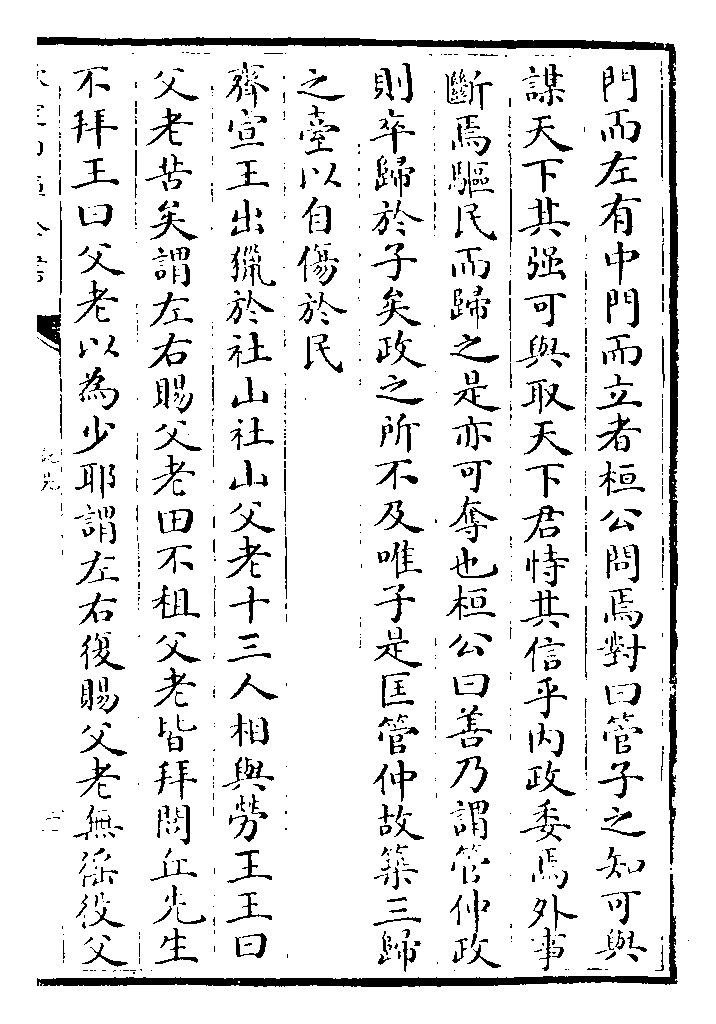 門而左有中門而立者桓公問焉對曰管子之知可與
謀天下其强可與取天下君恃其信乎内政委焉外事
斷焉驅民而歸之是亦可奪也桓公曰善乃謂管仲政
則卒歸於子矣政之所不及唯子是匡管仲故築三歸
之臺以自傷於民
齊宣王出獵於社山社山父老十三人相與勞王王曰
父老苦矣謂左右賜父老田不租父老皆拜閭丘先生
不拜王曰父老以為少耶謂左右復賜父老無徭役父